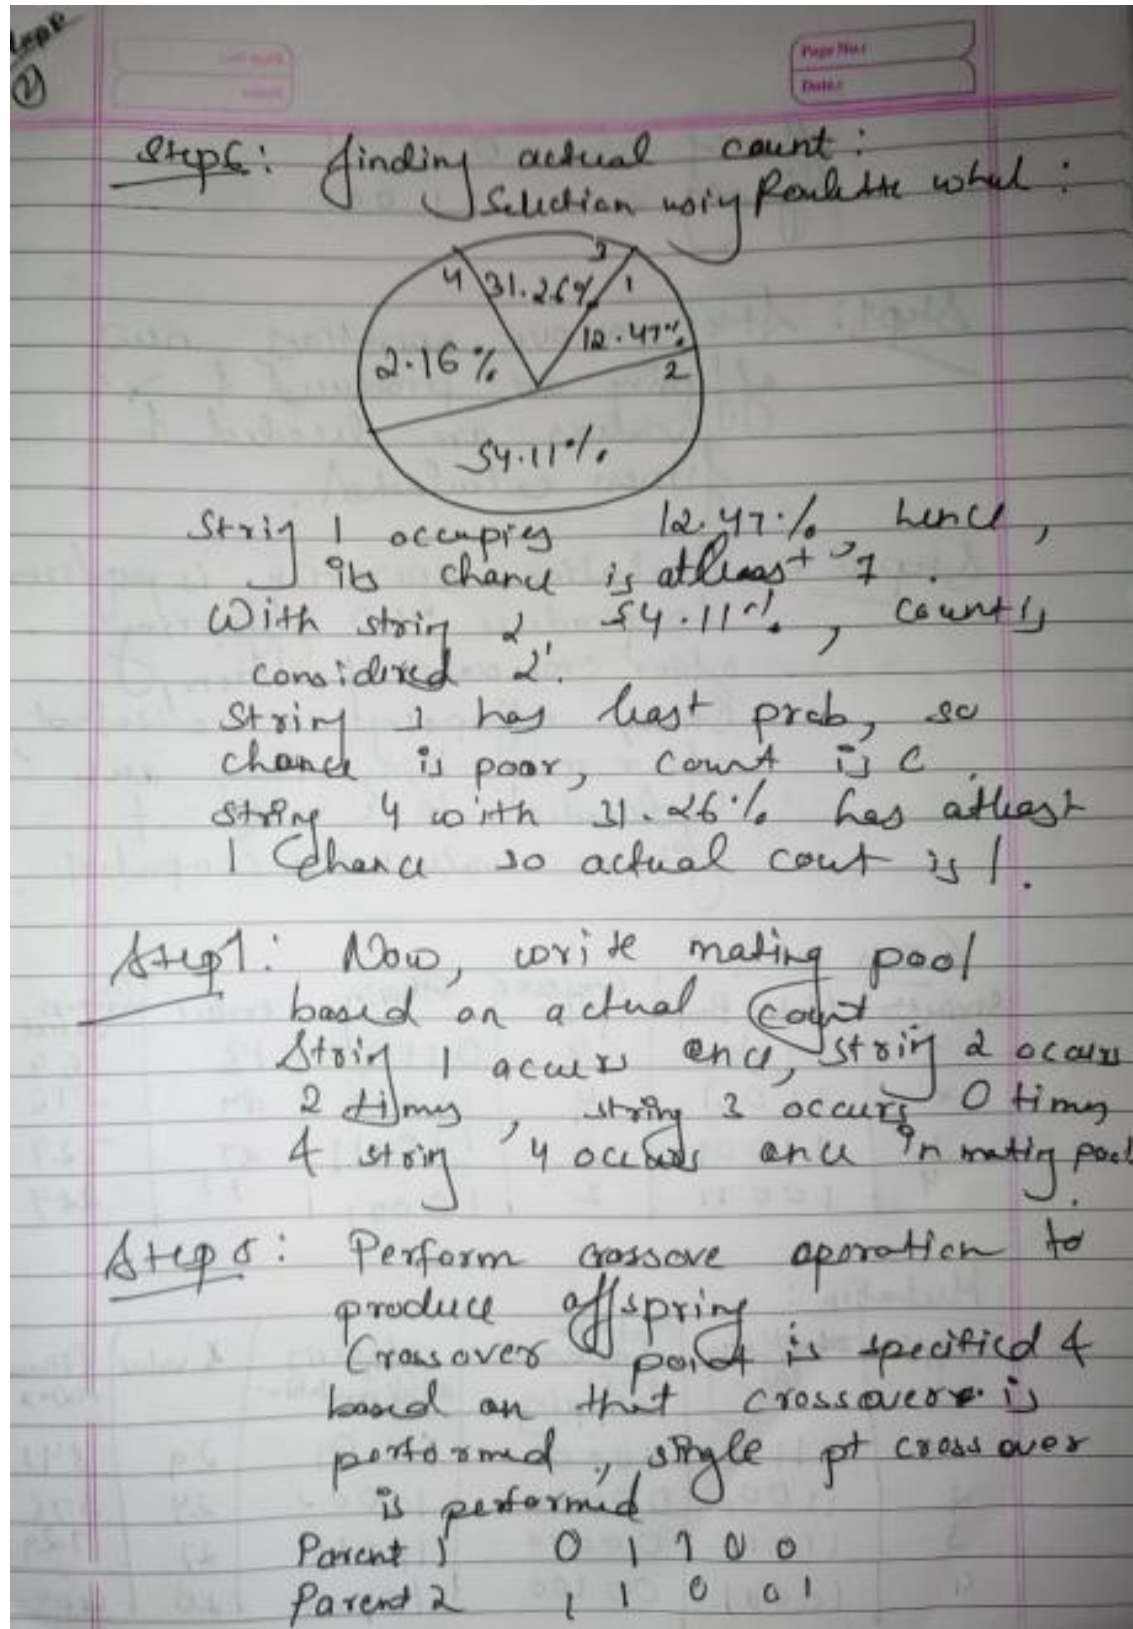 ②
Page No.:
Date:
Step6: finding actual count:
Selection using Roulette wheel:
4 31.26% 3 1
2.16% 12.47% 2
54.11%
String 1 occupies 12.47% hence,
its chance is atleast '1'.
With string 2, 54.11%, count is
considered '2'.
String 3 has least prob, so
chance is poor, count is 0.
string 4 with 31.26% has atleast
1 chance so actual cout is 1.
Step7: Now, write mating pool
based on actual count.
String 1 occurs once, string 2 occurs
2 times, string 3 occurs 0 times
& string 4 occurs once in mating pool.
Step 8: Perform crossove operation to
produce offspring
Crossover point is specified &
based on that crossover is
performed, single pt crossover
is performed
Parent 1 0 1 1 0 0
Parent 2 1 1 0 0 1